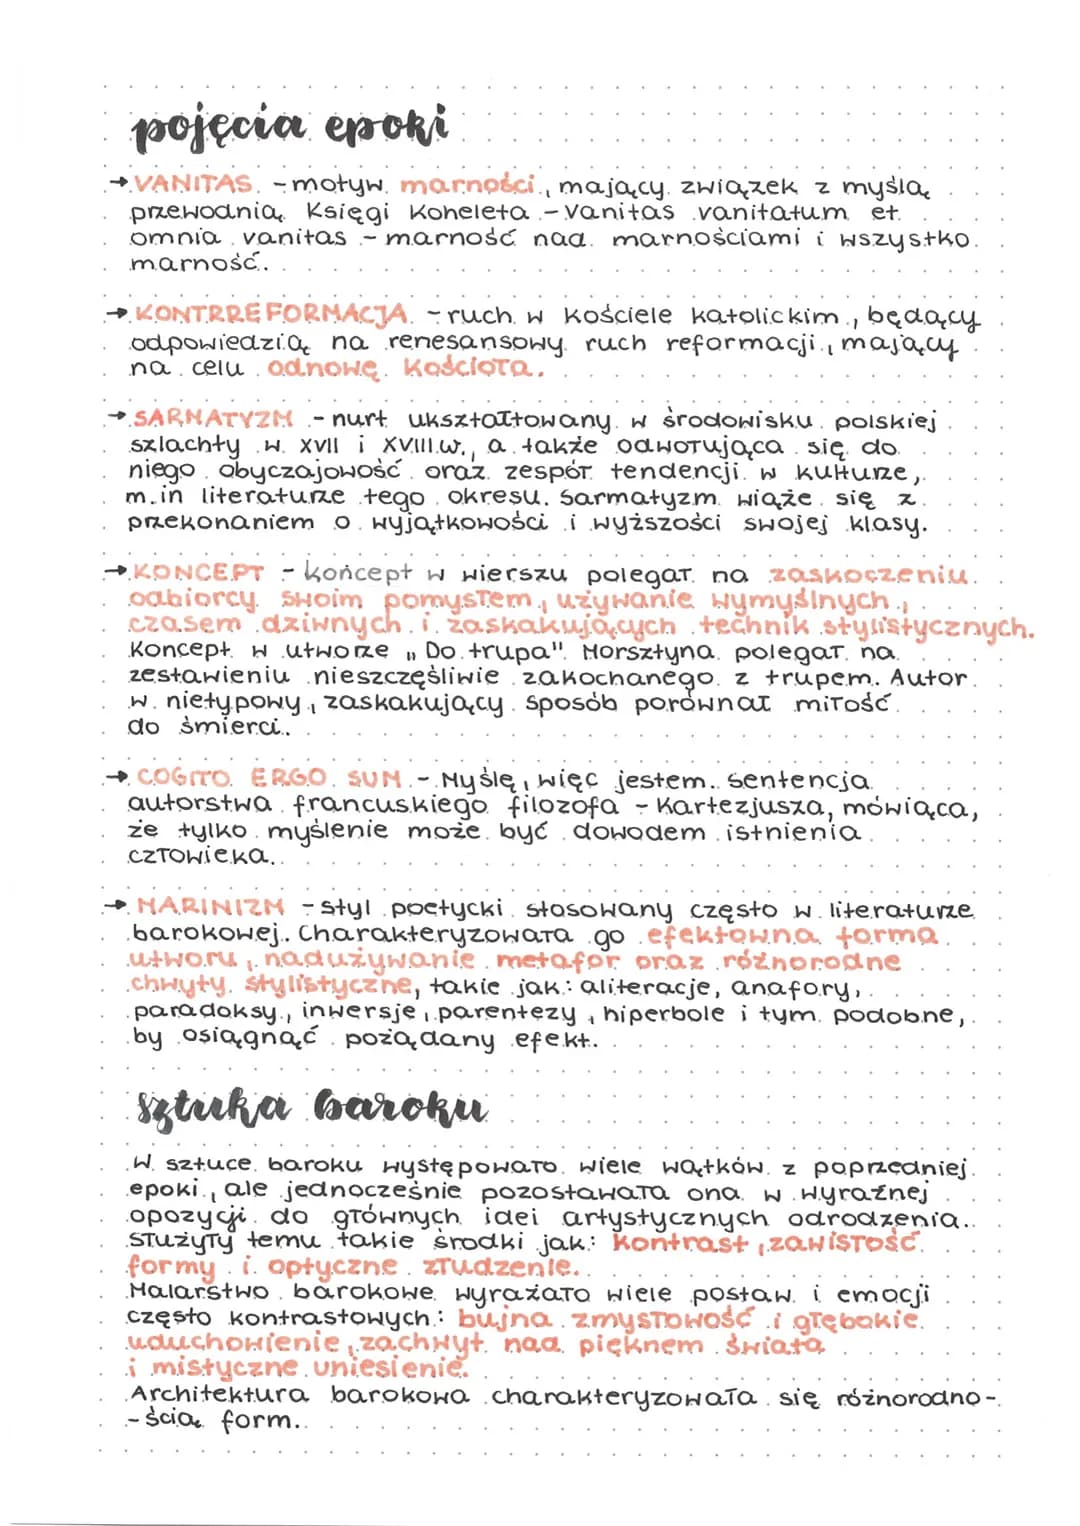 pojęcia epoki
→ VANITAS - motyw marności, mający związek z myślą
przewodnią Księgi Koheleta - vanitas vanitatum et
omnia vanitas - marność nad marnościami i wszystko
marność.
→ KONTRREFORMACJA - ruch w Kościele katolickim, będący
odpowiedzią na renesansowy ruch reformacji, mający
na celu odnowę Kościoła.
→ SARMATYZM - nurt ukształtowany w środowisku polskiej
szlachty w XVII i XVIII w., a także odwołująca się do
niego obyczajowość oraz zespół tendencji w kulturze,
m.in literaturze tego okresu. Sarmatyzm wiąże się z
przekonaniem o wyjątkowości i wyższości swojej klasy.
→ KONCEPT - koncept w wierszu polegał na zaskoczeniu
odbiorcy swoim pomysłem, używanie wymyślnych,
czasem dziwnych i zaskakujących technik stylistycznych.
Koncept w utworze „Do trupa" Morsztyna polegał na
zestawieniu nieszczęśliwie zakochanego z trupem. Autor
w nietypowy, zaskakujący sposób porównał miłość
do śmierci.
→ COGITO ERGO SUM - Myślę, więc jestem. Sentencja
autorstwa francuskiego filozofa - Kartezjusza, mówiąca,
że tylko myślenie może być dowodem istnienia
człowieka.
→ MARINIZM - styl poetycki stosowany często w literaturze
barokowej. Charakteryzowała go efektowna forma
utworu, nadużywanie metafor oraz różnorodne
chwyty stylistyczne, takie jak: aliteracje, anafory,
paradoksy, inwersje, parentezy, hiperbole i tym podobne,
by osiągnąć pożądany efekt.
sztuka baroku
W sztuce baroku występowało wiele wątków z poprzedniej
epoki, ale jednocześnie pozostawała ona w wyraźnej
opozycji do głównych idei artystycznych odrodzenia.
Służyły temu takie środki jak: kontrast, zawiłość
formy i optyczne złudzenie.
Malarstwo barokowe wyrażało wiele postaw i emocji
często kontrastowych: bujna zmysłowość i głębokie
uduchowienie, zachwyt nad pięknem świata
i mistyczne uniesienie.
Architektura barokowa charakteryzowała się różnorodno-
-ścią form.